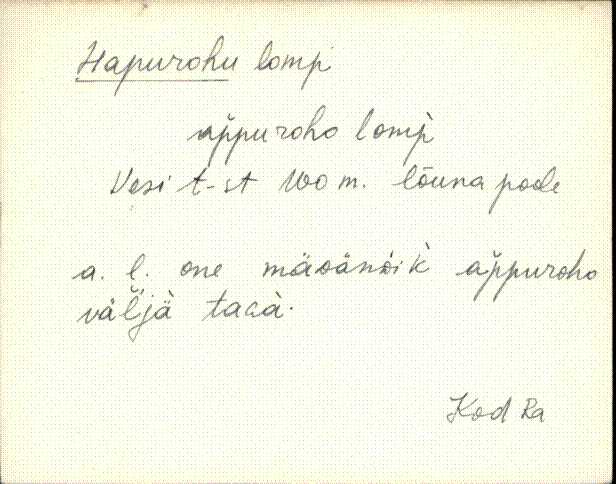 Hapurohu lomp
ap̆puroho lomp̀
Vesi t-st 100 m. lõuna poole
a. l. one mäòänòik̀ ap̆puroho
väl̆jà tacà.
Kod Ra